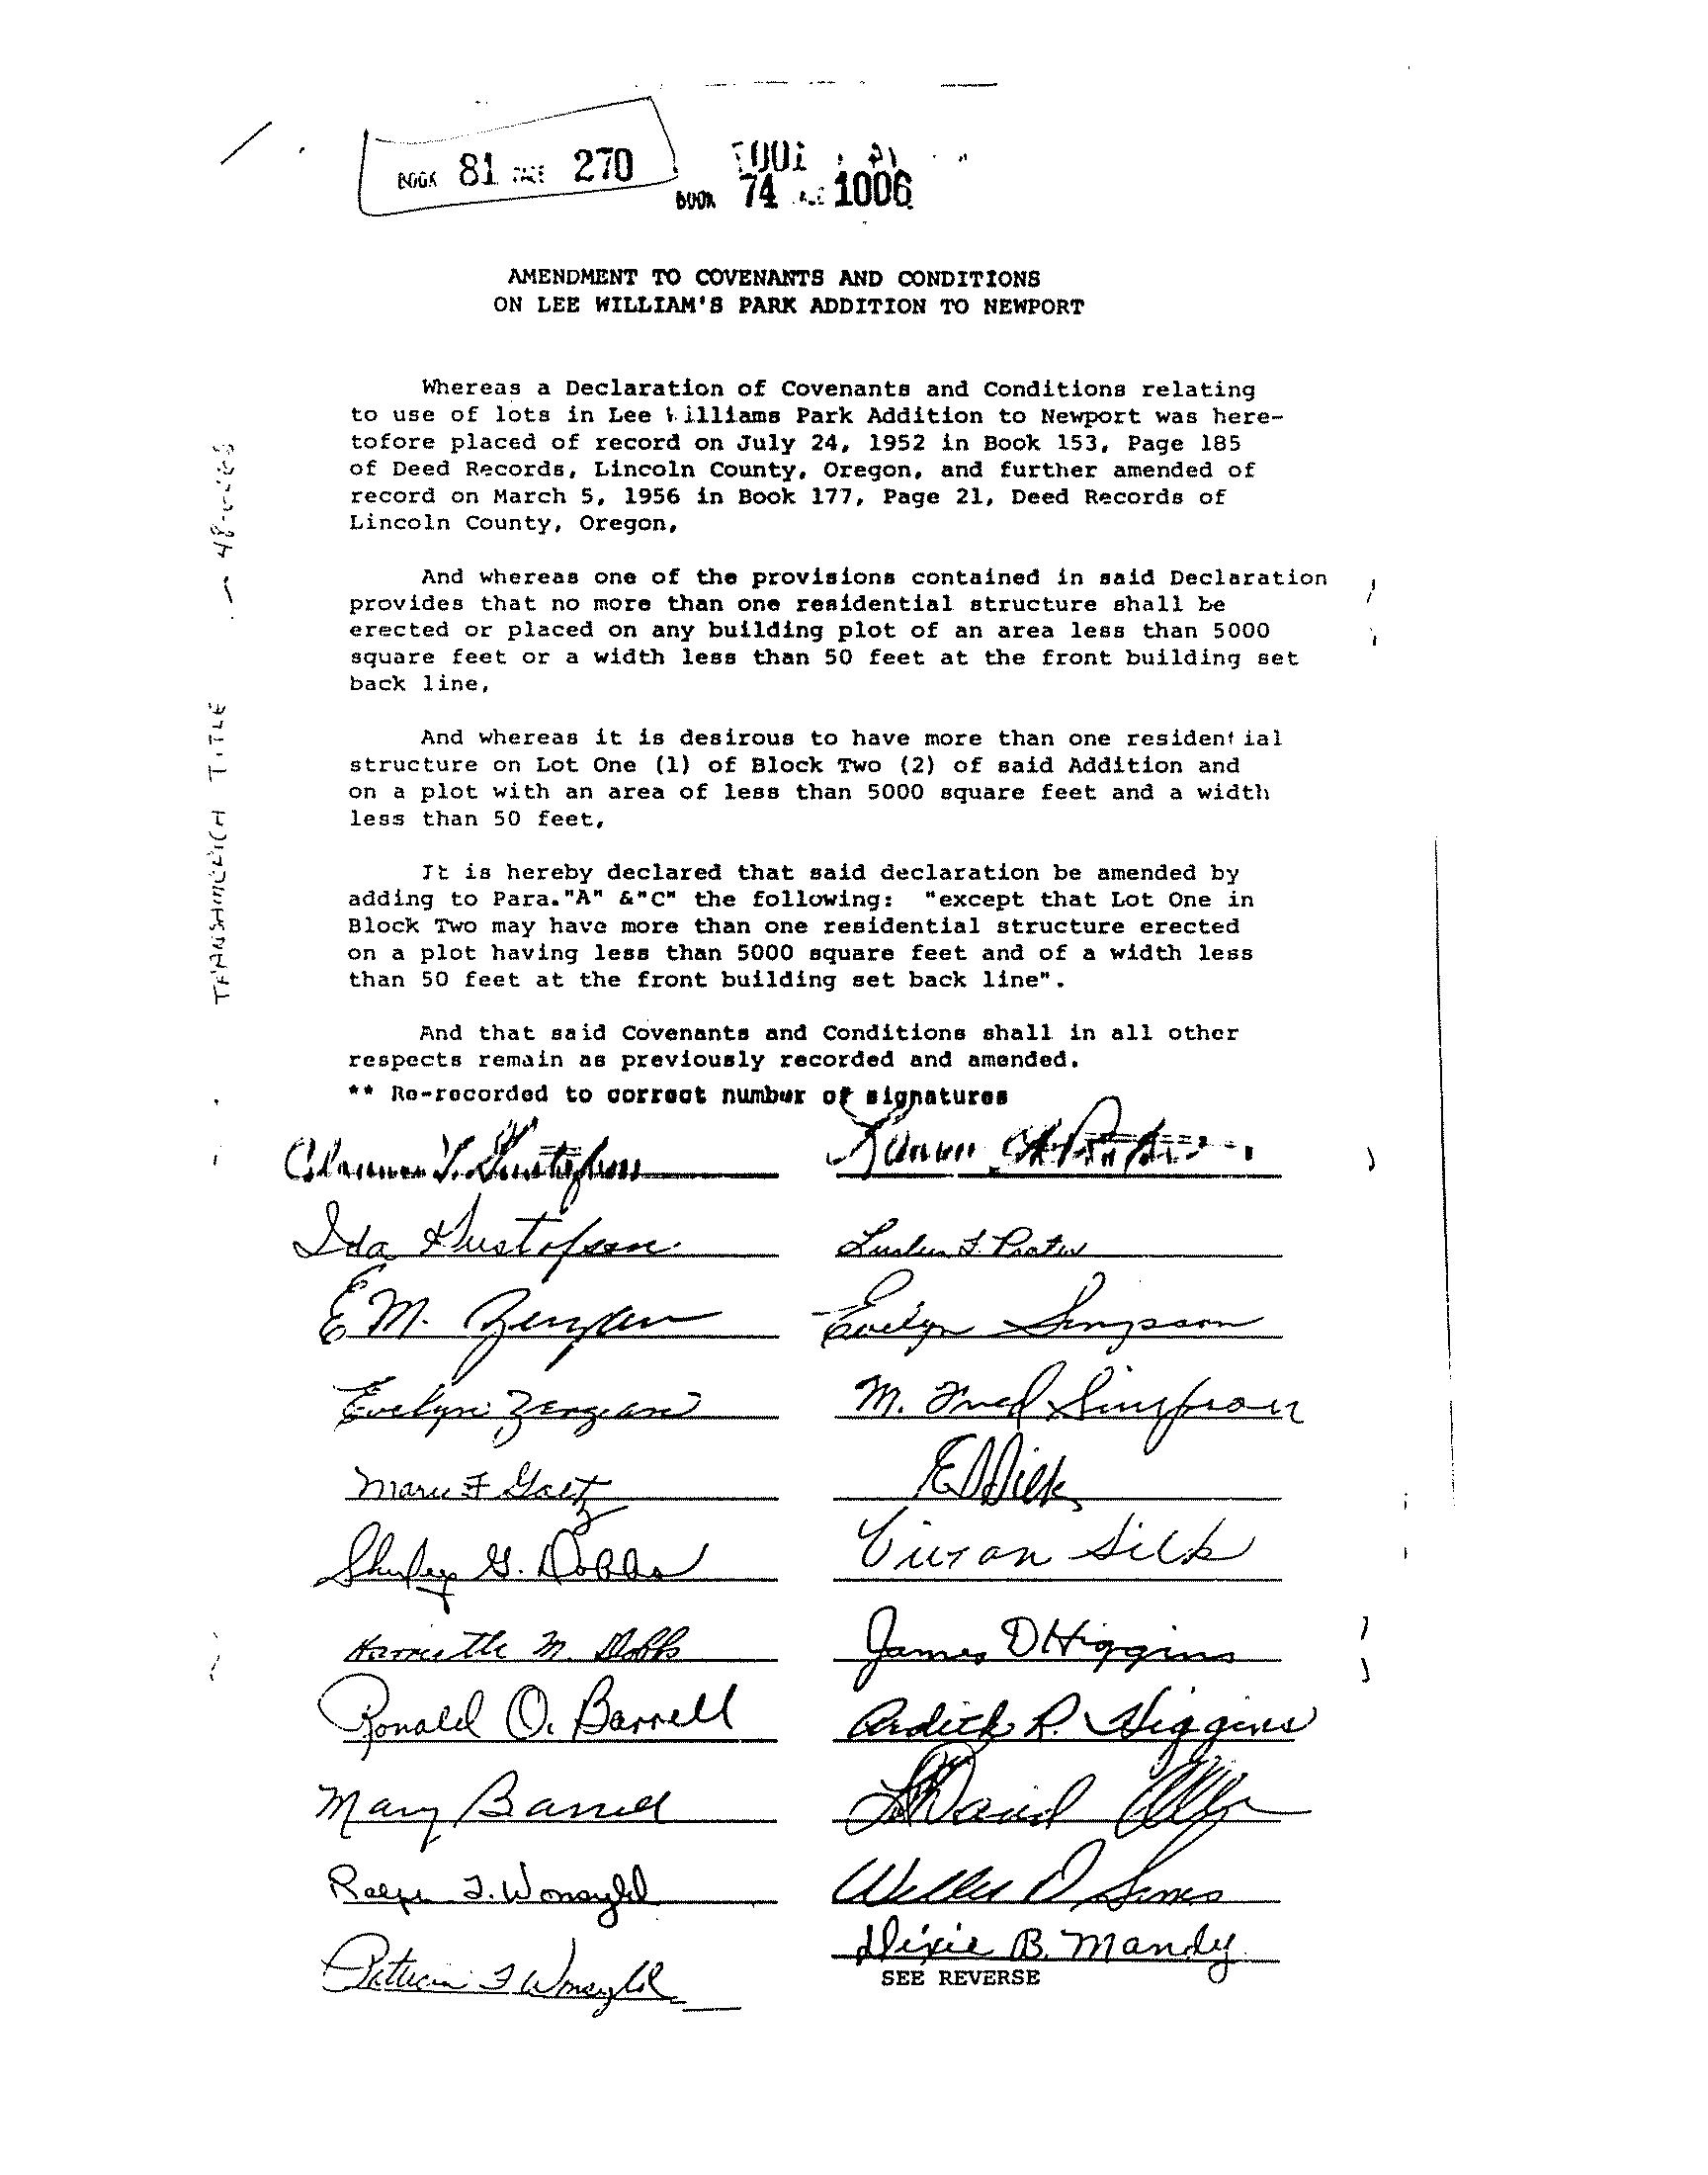 BOOK 81 PAGE 270
BOOK 74 PAGE 1006
AMENDMENT TO COVENANTS AND CONDITIONS
ON LEE WILLIAM'S PARK ADDITION TO NEWPORT
Whereas a Declaration of Covenants and Conditions relating
to use of lots in Lee Williams Park Addition to Newport was here-
tofore placed of record on July 24, 1952 in Book 153, Page 185
of Deed Records, Lincoln County, Oregon, and further amended of
record on March 5, 1956 in Book 177, Page 21, Deed Records of
Lincoln County, Oregon,
And whereas one of the provisions contained in said Declaration
provides that no more than one residential structure shall be
erected or placed on any building plot of an area less than 5000
square feet or a width less than 50 feet at the front building set
back line,
And whereas it is desirous to have more than one residential
structure on Lot One (1) of Block Two (2) of said Addition and
on a plot with an area of less than 5000 square feet and a width
less than 50 feet,
It is hereby declared that said declaration be amended by
adding to Para."A" &"C" the following: "except that Lot One in
Block Two may have more than one residential structure erected
on a plot having less than 5000 square feet and of a width less
than 50 feet at the front building set back line".
And that said Covenants and Conditions shall in all other
respects remain as previously recorded and amended.
** Re-recorded to correct number of signatures
Gustafson
Ida Gustafson
E M.
Evelyn Simpson
Evelyn Zengean
M. Fred Simpson
E D Silk
Shirley G. Dobbs
Vivian Silk
M. Dobbs
James D Higgins
Ronald O. Barrell
Ardith R. Higgins
Mary Barrell
David
Ralph
Dixie B. Mandy
Patricia
SEE REVERSE
TRANSAMERICA TITLE